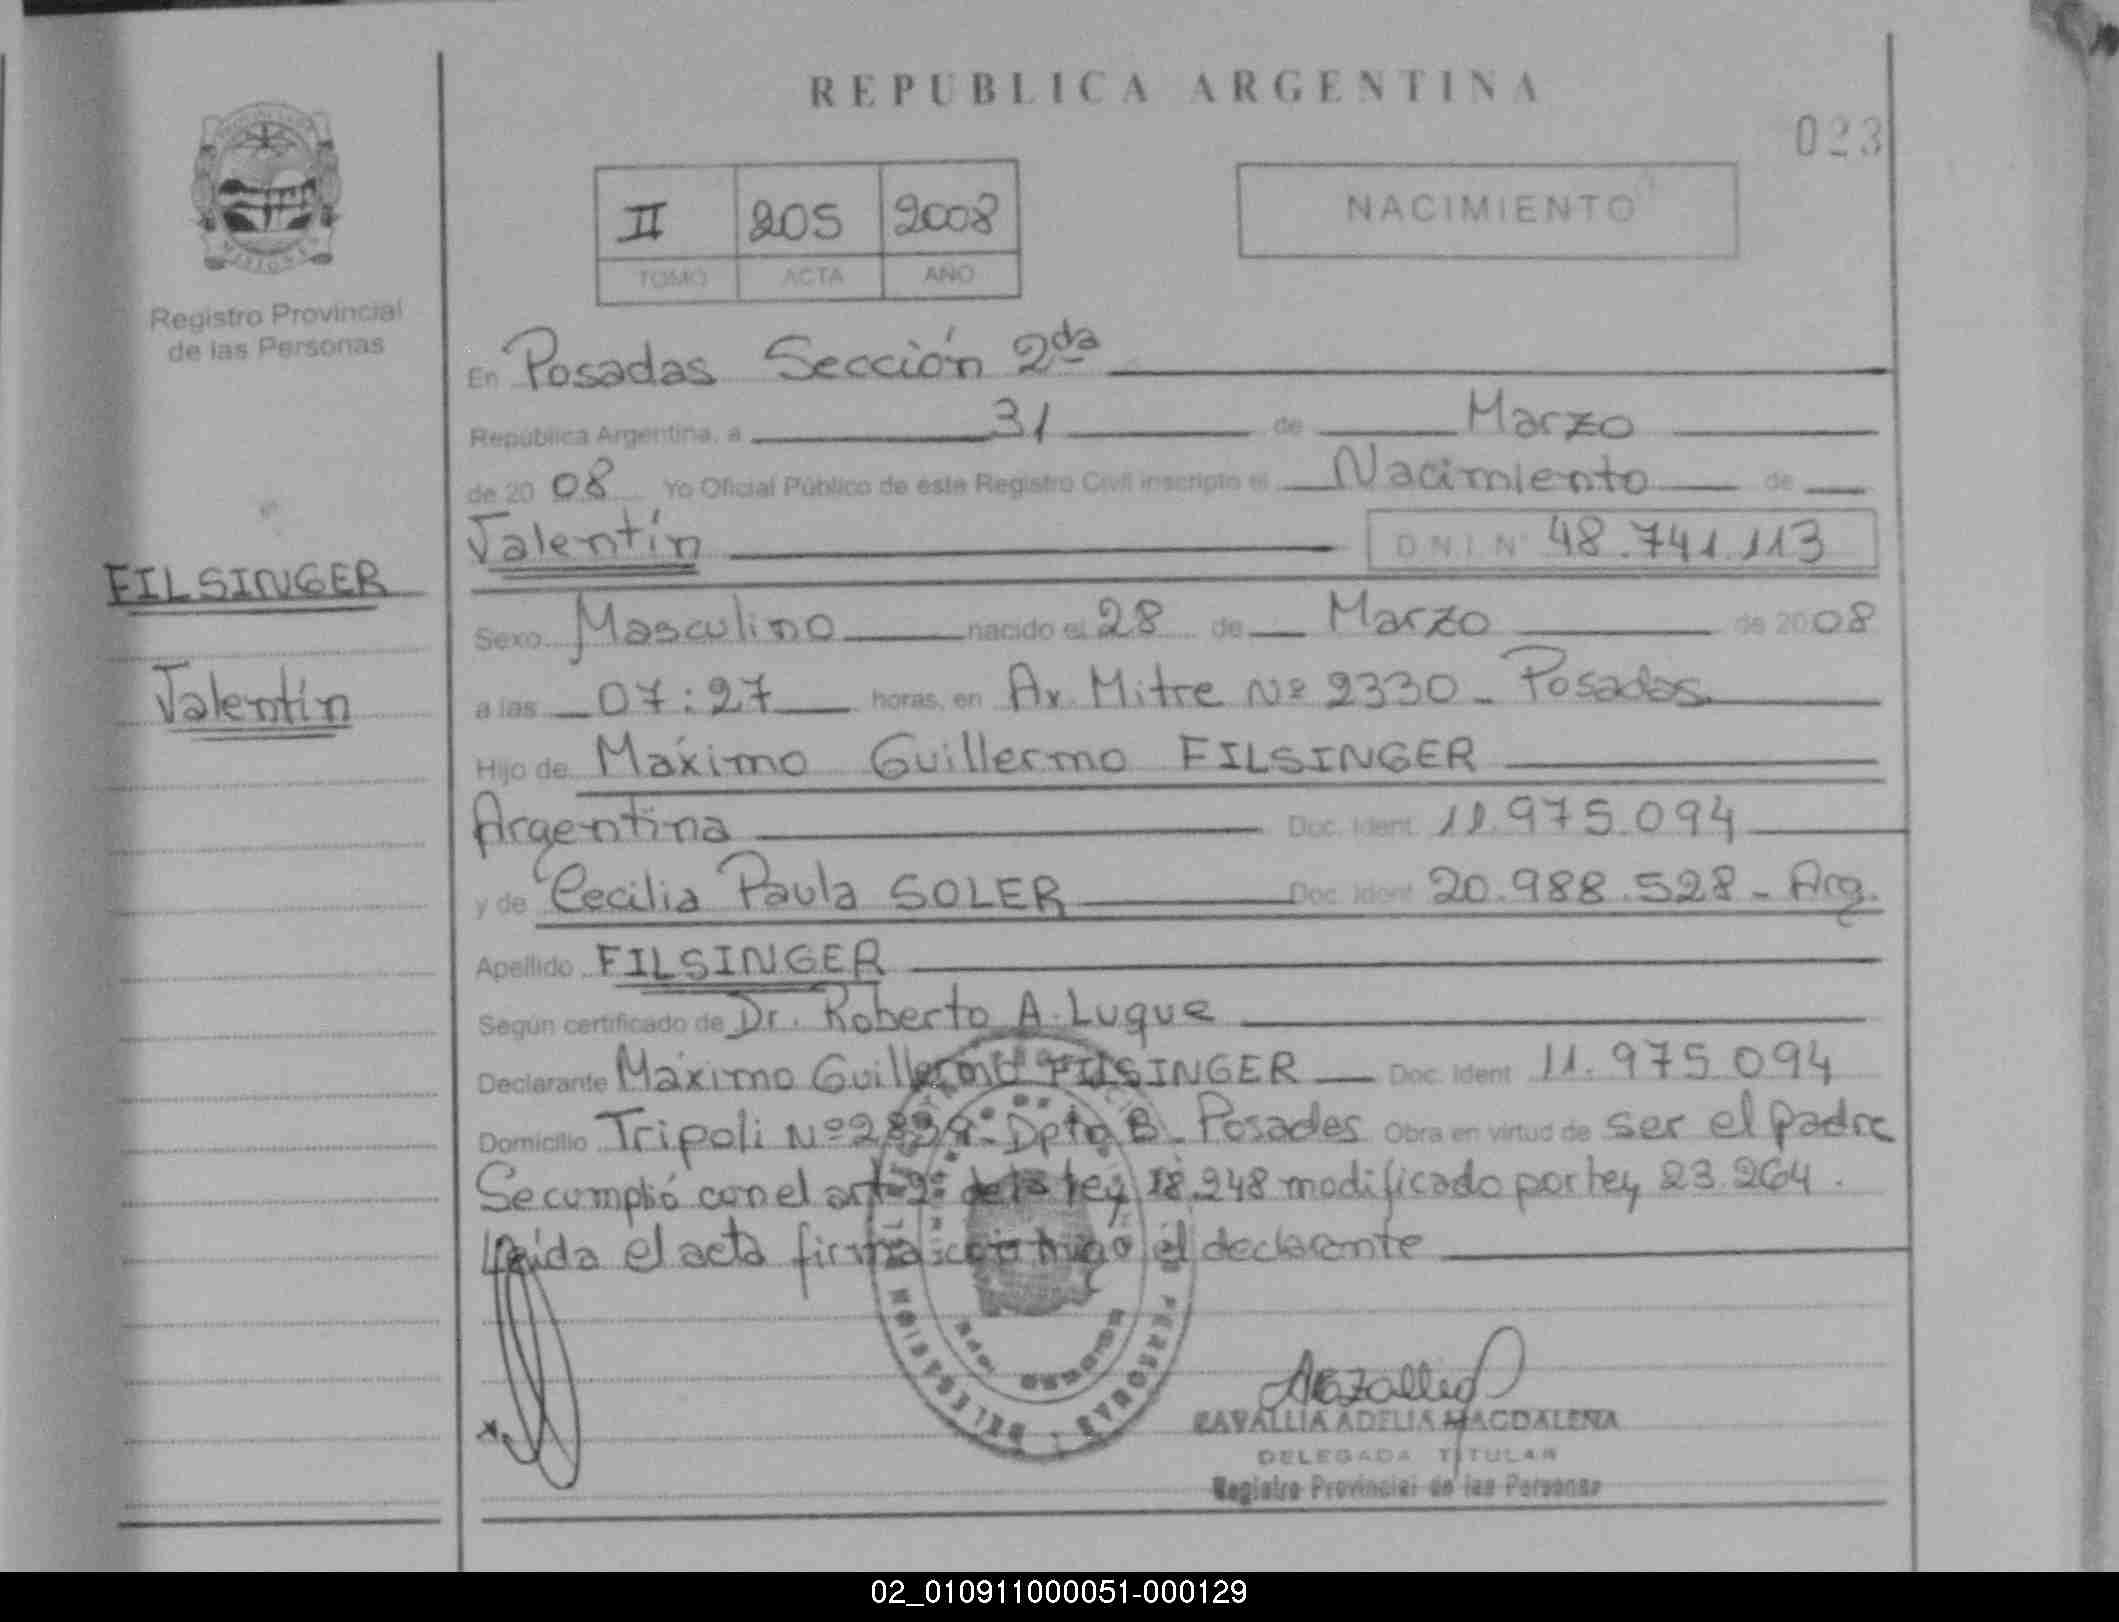 REPUBLICA ARGENTINA
023
II 205 2008
TOMO ACTA AÑO
NACIMIENTO
MISIONES
Registro Provincial
de las Personas
FILSINGER
Valentín
En Posadas Sección 2da
República Argentina, a 31 de Marzo
de 20 08 Yo Oficial Público de éste Registro Civil inscripto el Nacimiento de
Valentín D.N.I. Nº 48.741.113
Sexo Masculino nacido el 28 de Marzo de 2008
a las 07:27 horas, en Av. Mitre Nº 2330 - Posadas
Hijo de Máximo Guillermo FILSINGER
Argentina Doc. Ident. 11.975.094
y de Cecilia Paula SOLER Doc. Ident. 20.988.528 - Arg.
Apellido FILSINGER
Según certificado de Dr. Roberto A. Luque
Declarante Máximo Guillermo FILSINGER Doc. Ident 11.975.094
Domicilio Tripoli Nº Dpto B - Posadas Obra en virtud de ser el padre
Se cumplió con el art 2º de la ley 18.248 modificado por ley 23.264.
Leida el acta firma conmigo el declarante
DELEGACION PERSONAS
DELEGADA TITULAR
Registro Provincial de las Personas
02_010911000051-000129